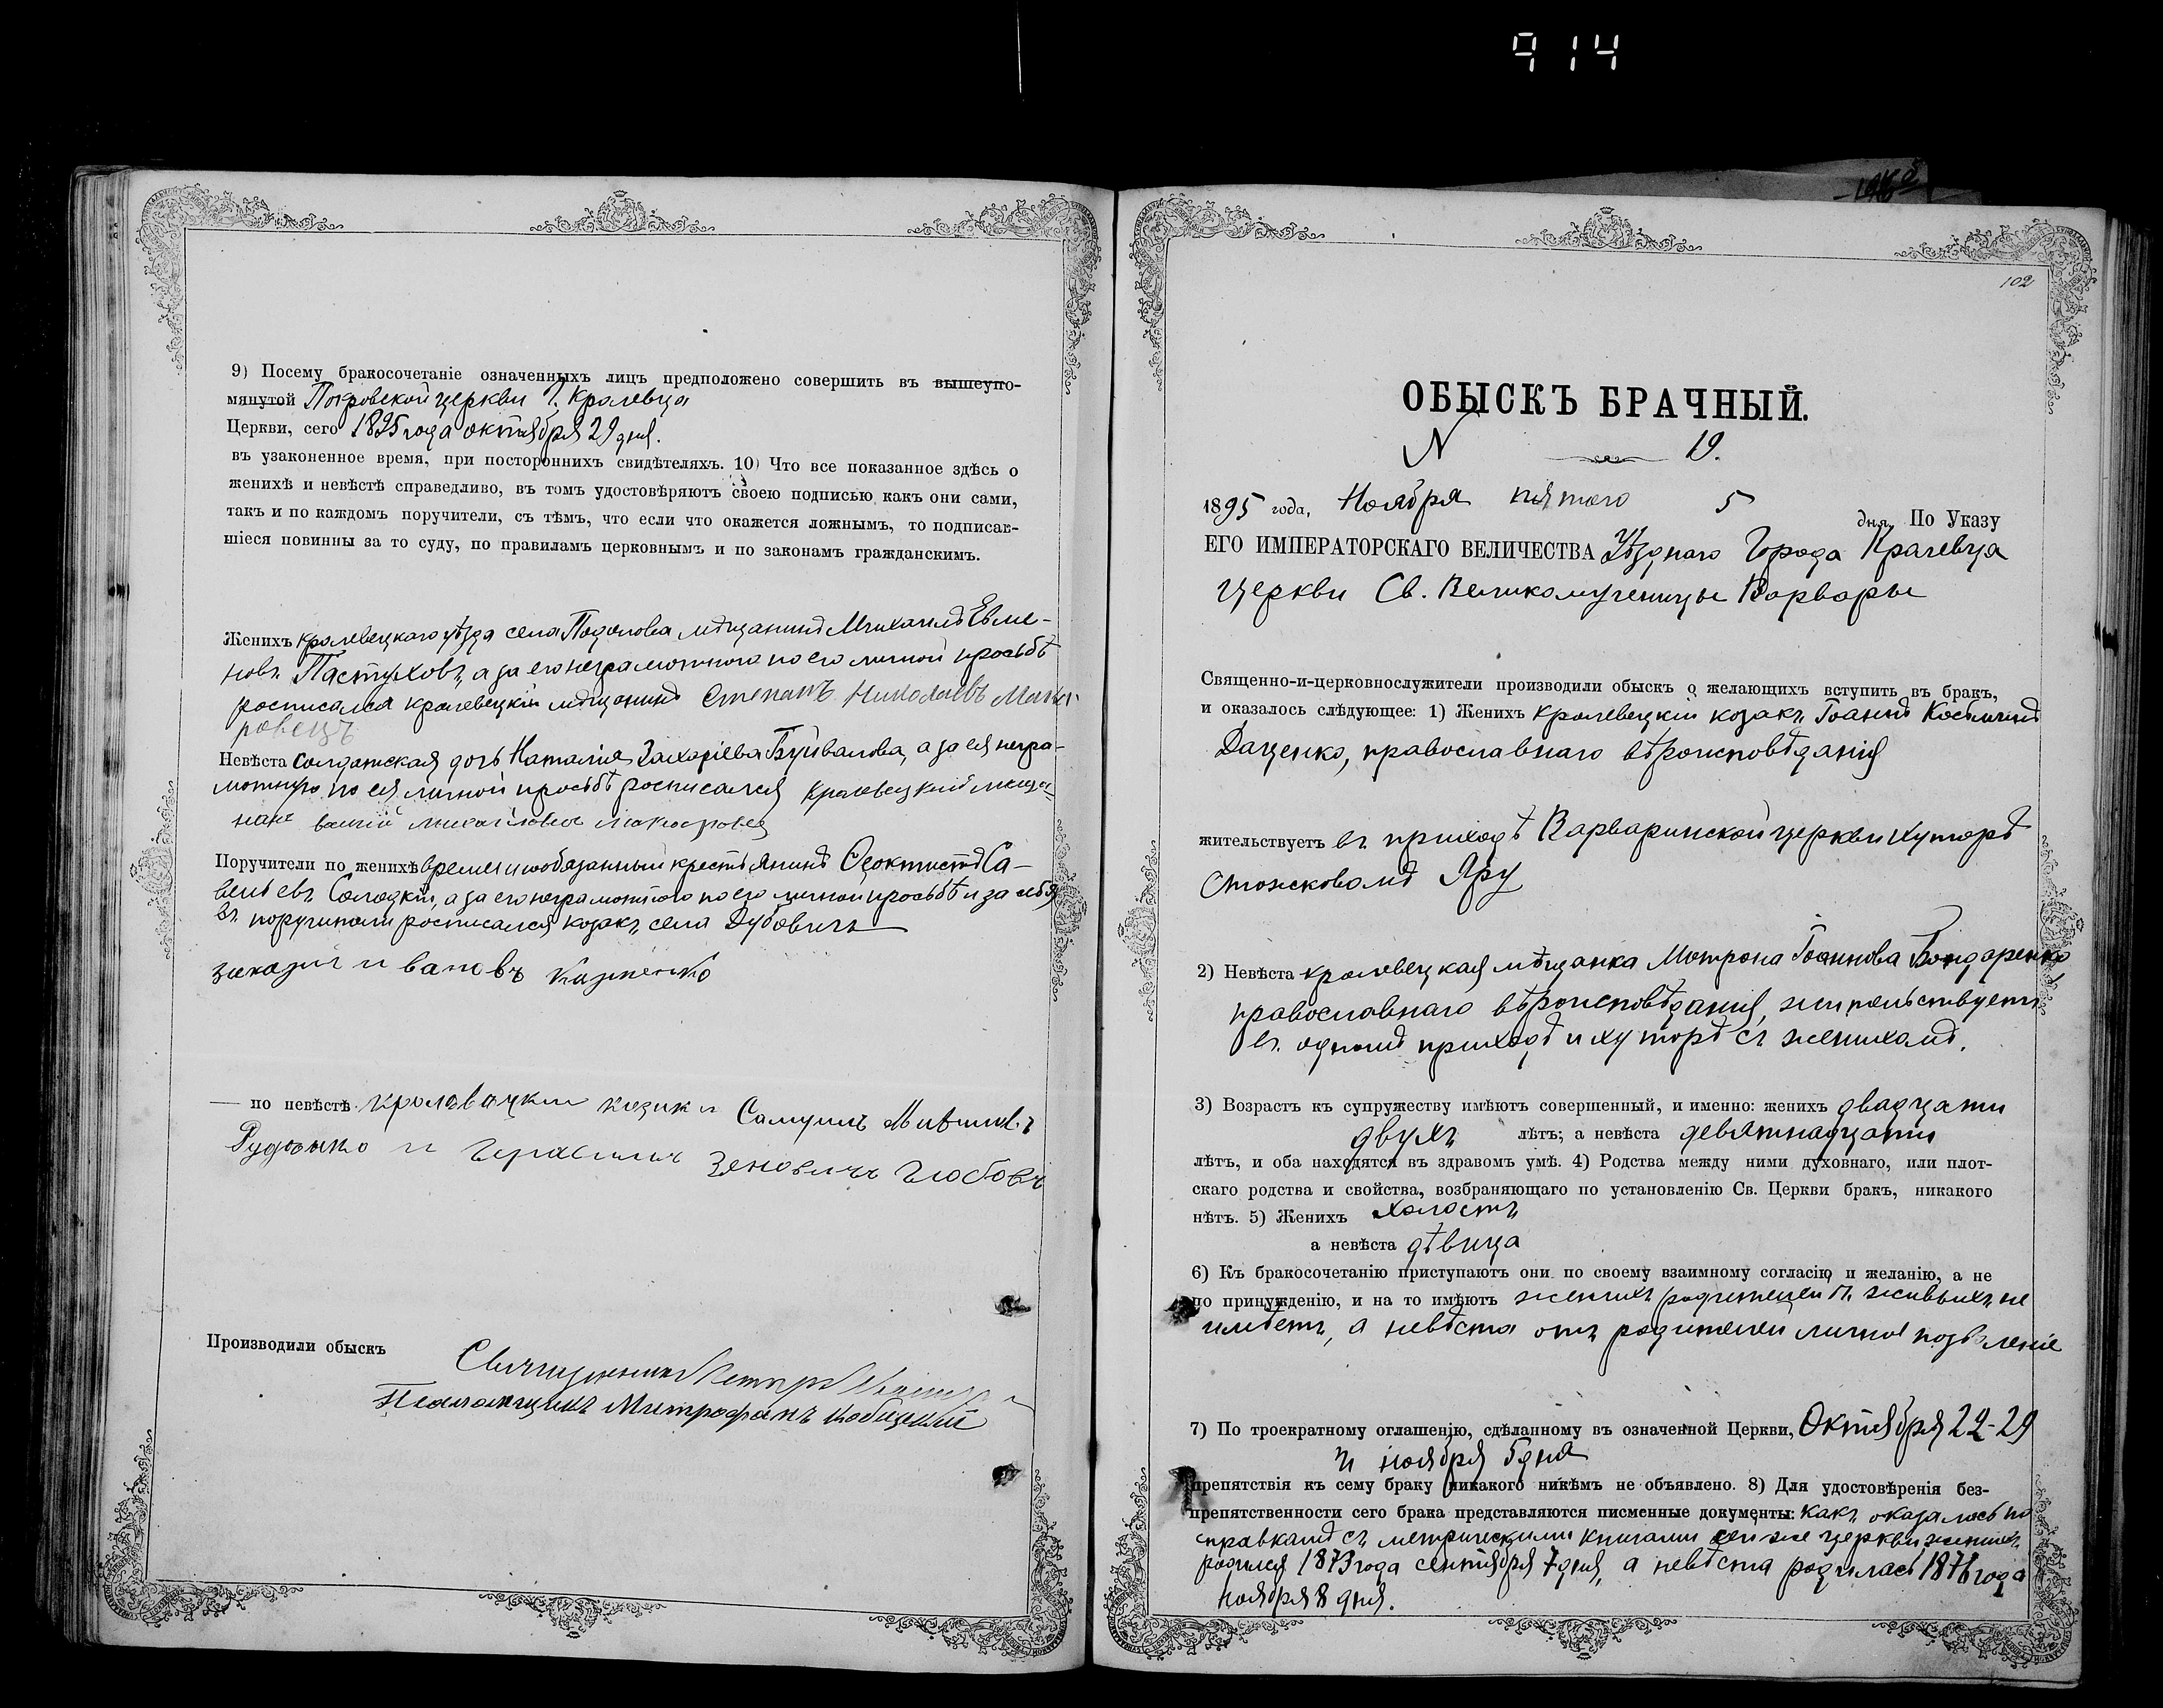 914
9) Посему бракосочетаніе означенныхъ лицъ предположено совершить въ вышеупо-
мянутой Покровской церкви г. Кролевца
Церкви, сего 1895 года октября 29 дня.
въ узаконенное время, при постороннихъ свидѣтеляхъ. 10) Что все показанное здѣсь о
женихѣ и невѣстѣ справедливо, въ томъ удостовѣряютъ своею подписью какъ они сами,
такъ и по каждомъ поручители, съ тѣмъ, что если что окажется ложнымъ, то подписав-
шіеся повинны за то суду, по правиламъ церковнымъ и по законамъ гражданскимъ.
Женихъ кролевецкаго уѣзда села Подолова мѣщанинъ Михаилъ Евме-
новъ Пастуховъ, а за его неграмотного по его личной просьбѣ
росписался кролевецкій мѣщанинъ Степанъ Николаевъ
Невѣста солдатская дочь Наталія Захаріева Буйвалова, а за ея негра-
мотную по ея личной просьбѣ росписался кролевецкій мѣща-
нинъ
Поручители по женихѣ временнообязанный крестьянинъ Ѳеоктистъ Са-
вельевъ Солодкій, а за его неграмотного по его личной просьбѣ и за себя
въ поручители росписался козакъ села Дубовичъ
ивановъ
по невѣстѣ козаки Самуилъ
Рудченко и Герасимъ Зеновичъ
Производили обыскъ
Священникъ Петръ
Псаломщикъ Митрофанъ
102
ОБЫСКЪ БРАЧНЫЙ.
N 19.
1895 года, Ноября пятого 5 дня, По Указу
ЕГО ИМПЕРАТОРСКАГО ВЕЛИЧЕСТВА Уѣзднаго Города Кролевца
Церкви Св. Великомученицы Варвары
Священно-и-церковнослужители производили обыскъ о желающихъ вступить въ бракъ,
и оказалось слѣдующее: 1) Женихъ кролевецкій козакъ Іоаннъ Косминъ
Даценко, православнаго вѣроисповѣданія
жительствуетъ въ приходѣ Варваринской церкви хуторѣ
Яру
2) Невѣста кролевецкая мѣщанка Мотрона Іоаннова Бондаренко
православнаго вѣроисповѣданія, жительствуетъ
въ одномъ приходѣ и хуторѣ съ женихомъ.
3) Возрастъ къ супружеству имѣютъ совершенный, и именно: женихъ двадцати
двухъ лѣтъ; а невѣста девятнадцати
лѣтъ, и оба находятся въ здравомъ умѣ. 4) Родства между ними духовнаго, или плот-
скаго родства и свойства, возбраняющаго по установленію Св. Церкви бракъ, никакого
нѣтъ. 5) Женихъ холостъ
а невѣста дѣвица
6) Къ бракосочетанію приступаютъ они по своему взаимному согласію и желанію, а не
по принужденію, и на то имѣютъ женихъ родителей въ живыхъ не
имѣетъ, а невѣста отъ родителей личное позволеніе
7) По троекратному оглашенію, сдѣланному въ означенной Церкви, Октября 22-29
и ноября 5 дня
препятствія къ сему браку никакого никѣмъ не объявлено. 8) Для удостовѣренія без-
препятственности сего брака представляются писменные документы: какъ оказалось по
справкамъ съ метрическими книгами сей же церкви женихъ
родился 1873 года сентября 7 дня, а невѣста родилась 1876 года
ноября 8 дня.